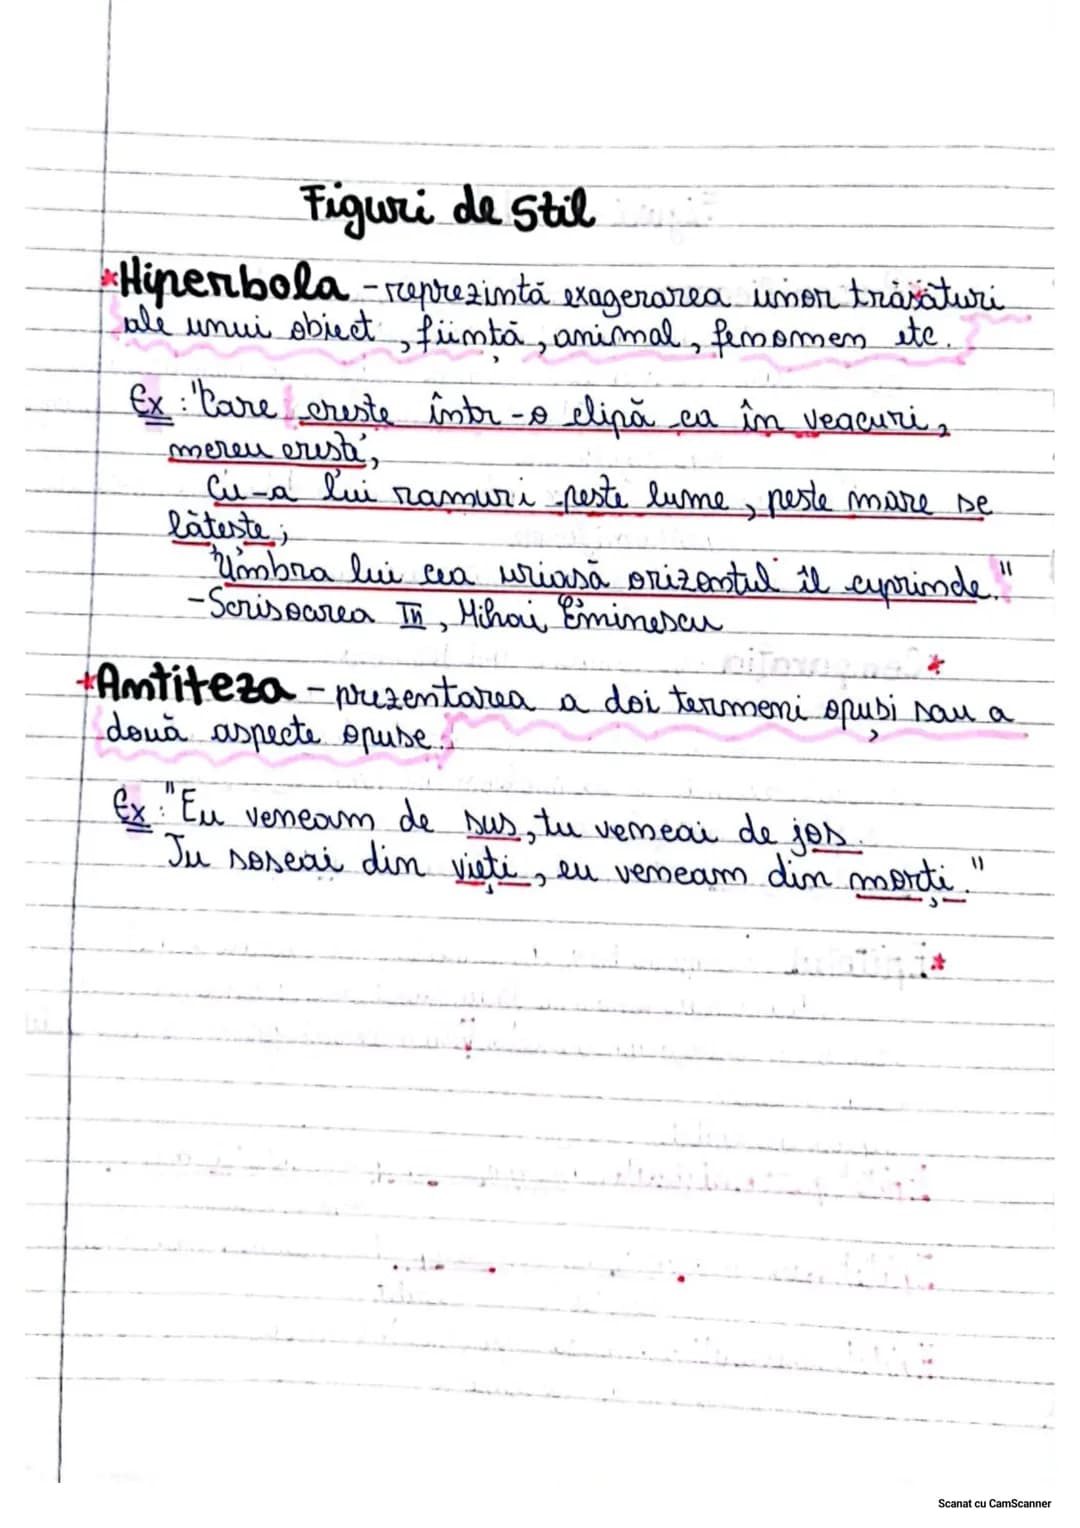 Figuri de Stil
*Hiperbola - reprezintă exagerarea unor trăsături
ale unui obiect, ființă, animal, fenomen etc.
Ex: "Care crește într-o clipă ca în veacuri,
mereu crește,
Cu-a lui ramuri peste lume, peste mare se
lățește;
Umbra lui cea uriașă orizontul îl cuprinde."
-Scrisoarea III, Mihai Eminescu
*Antiteza - prezentarea a doi termeni opuși sau a
două aspecte opuse.
Ex: "Eu veneam de sus, tu veneai de jos.
Tu soseai din vieți, eu veneam din morți."
Scanat cu CamScanner